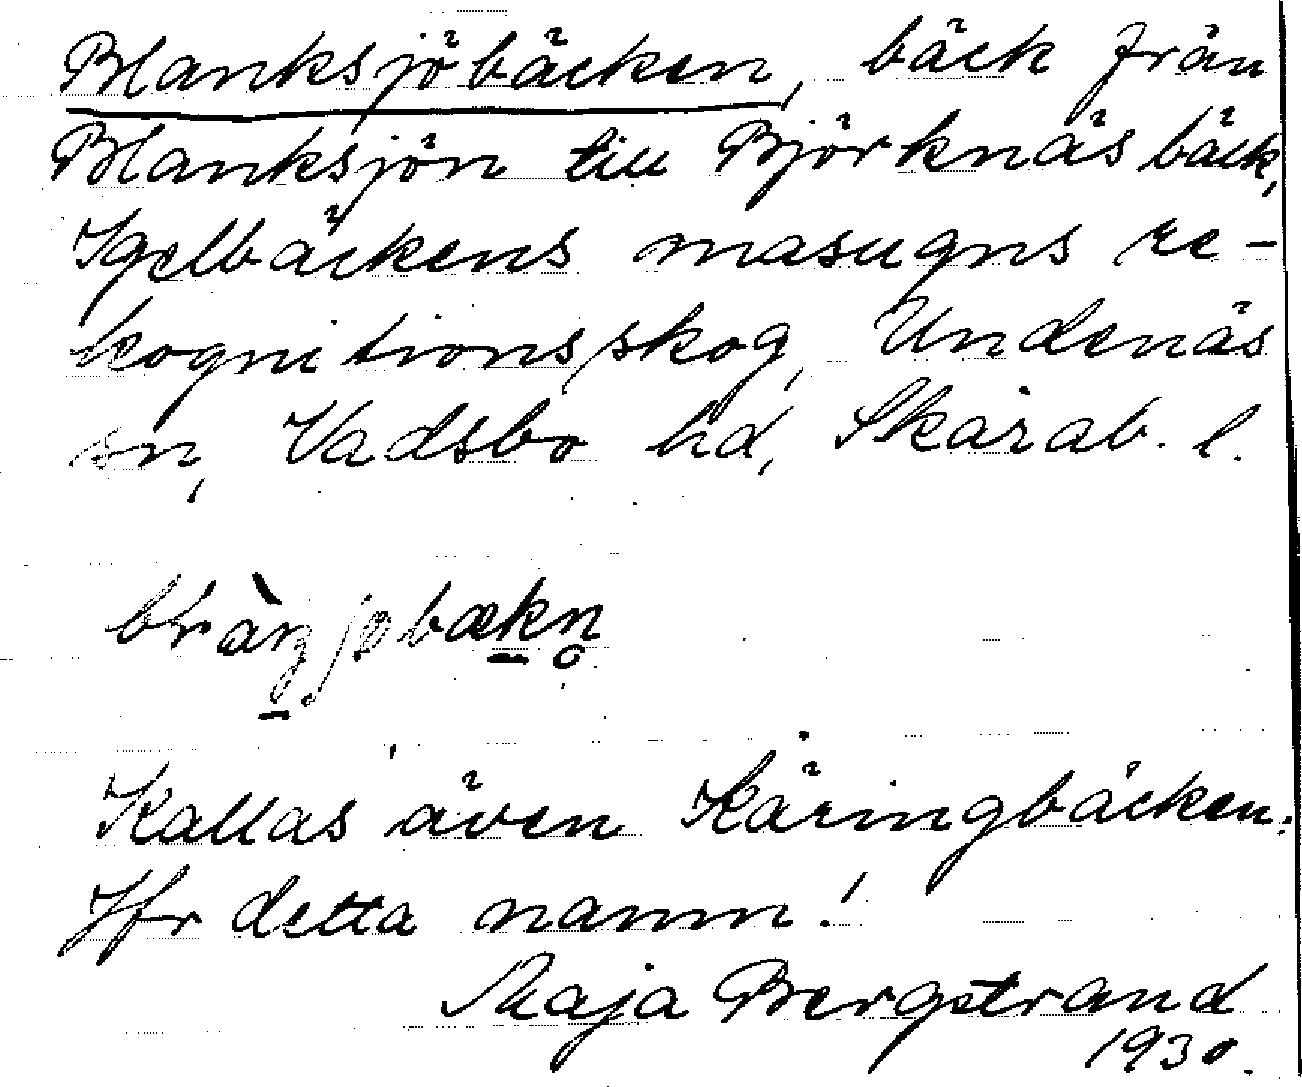 Blanksjöbäcken, bäck från
Blanksjön till Björknäsbäck,
Igelbäckens masugns re-
kognitionsskog, Undenäs
sn, Vadsbo hd, Skarab. l.
Kallas även Käringbäcken.
Jfr detta namn!
Maja Bergstrand
1930.